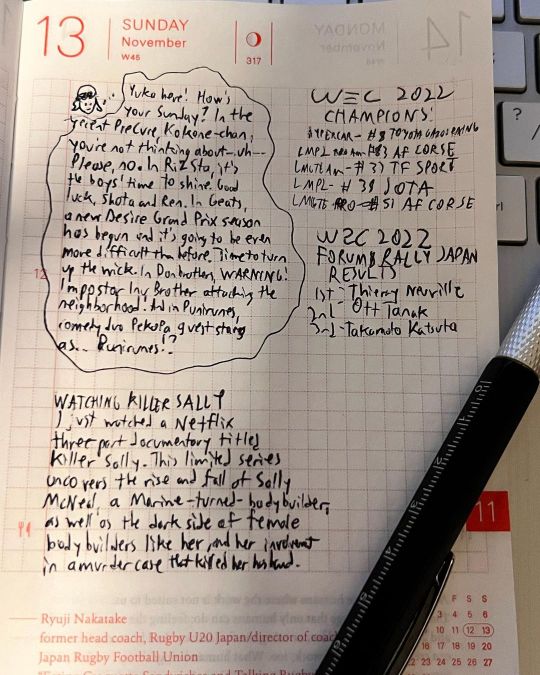 13
SUNDAY
November
W45
317
14
MONDAY
November
Yuko here! How's
your Sunday? In the
recent PreCure, Kokone-chan,
you're not thinking about--uh--
Please, no. In RizSta, it's
the boys' time to shine. Good
luck, Shota and Ren. In Geats,
a new Desire Grand Prix season
has begun and it's going to be even
more difficult than before. Time to turn
up the wick. In Donbrothers, WARNING!
Impostor Inu Brother attacking the
neighborhood! And in Punirunes,
comedy duo PekoPa guest stars
as... Punirunes!?
12
WATCHING KILLER SALLY
I just watched a Netflix
three part documentary titled
Killer Sally. This limited series
uncovers the rise and fall of Sally
McNeal, a Marine-turned-bodybuilder,
as well as the dark side of female
bodybuilders like her, and her
in a murder case that killed her husband.
WEC 2022
CHAMPIONS:
HYPERCAR - #8 TOYOTA GAZOO RACING
LMP2 PRO AM - #83 AF CORSE
LMGTE Am - #33 TF SPORT
LMP2 - #38 JOTA
LMGTE PRO - #51 AF CORSE
WRC 2022
FORUM8 RALLY JAPAN
RESULTS
1st - Thierry Neuville
2nd - Ott Tanak
3rd - Takamoto Katsuta
Ryuji Nakatake
former head coach, Rugby U20 Japan/director of coac
Japan Rugby Football Union
11
F S S
4 5 6
11 12 13
18 19 20
25 26 27
?
/